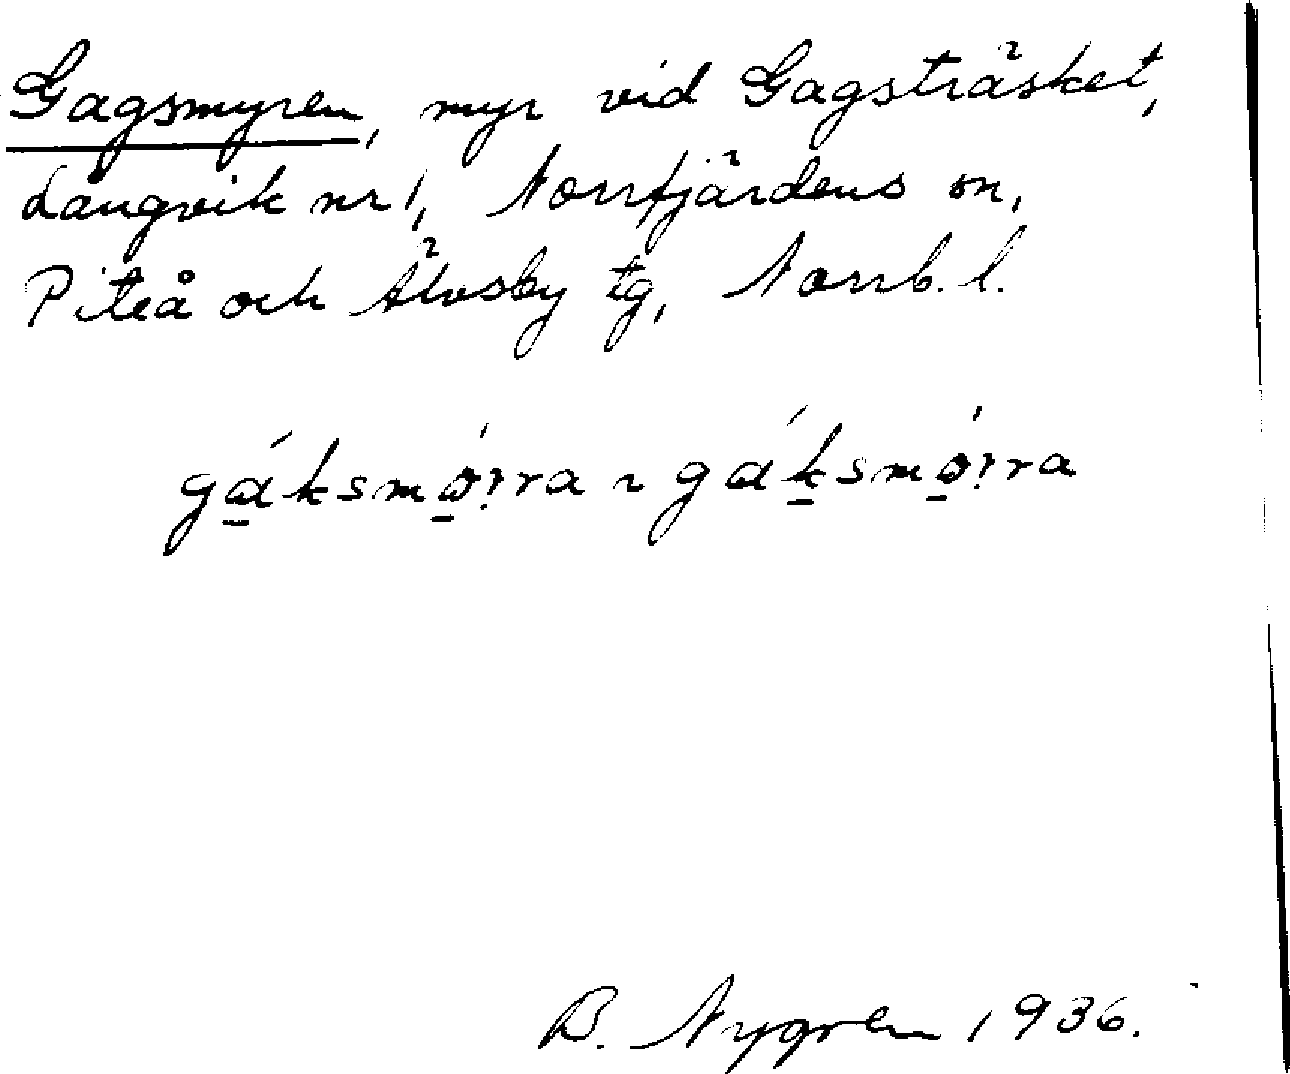 Gagsmyren, myr vid Gagsträsket,
Långvik nr 1, Norrfjärdens sn,
Piteå och Älvsby tg, Norrb. l.
gɑ̠́ksmǿ̠i̭ra ~ gɑ́k̠smǿ̠i̭ra
B. Nygren 1936.